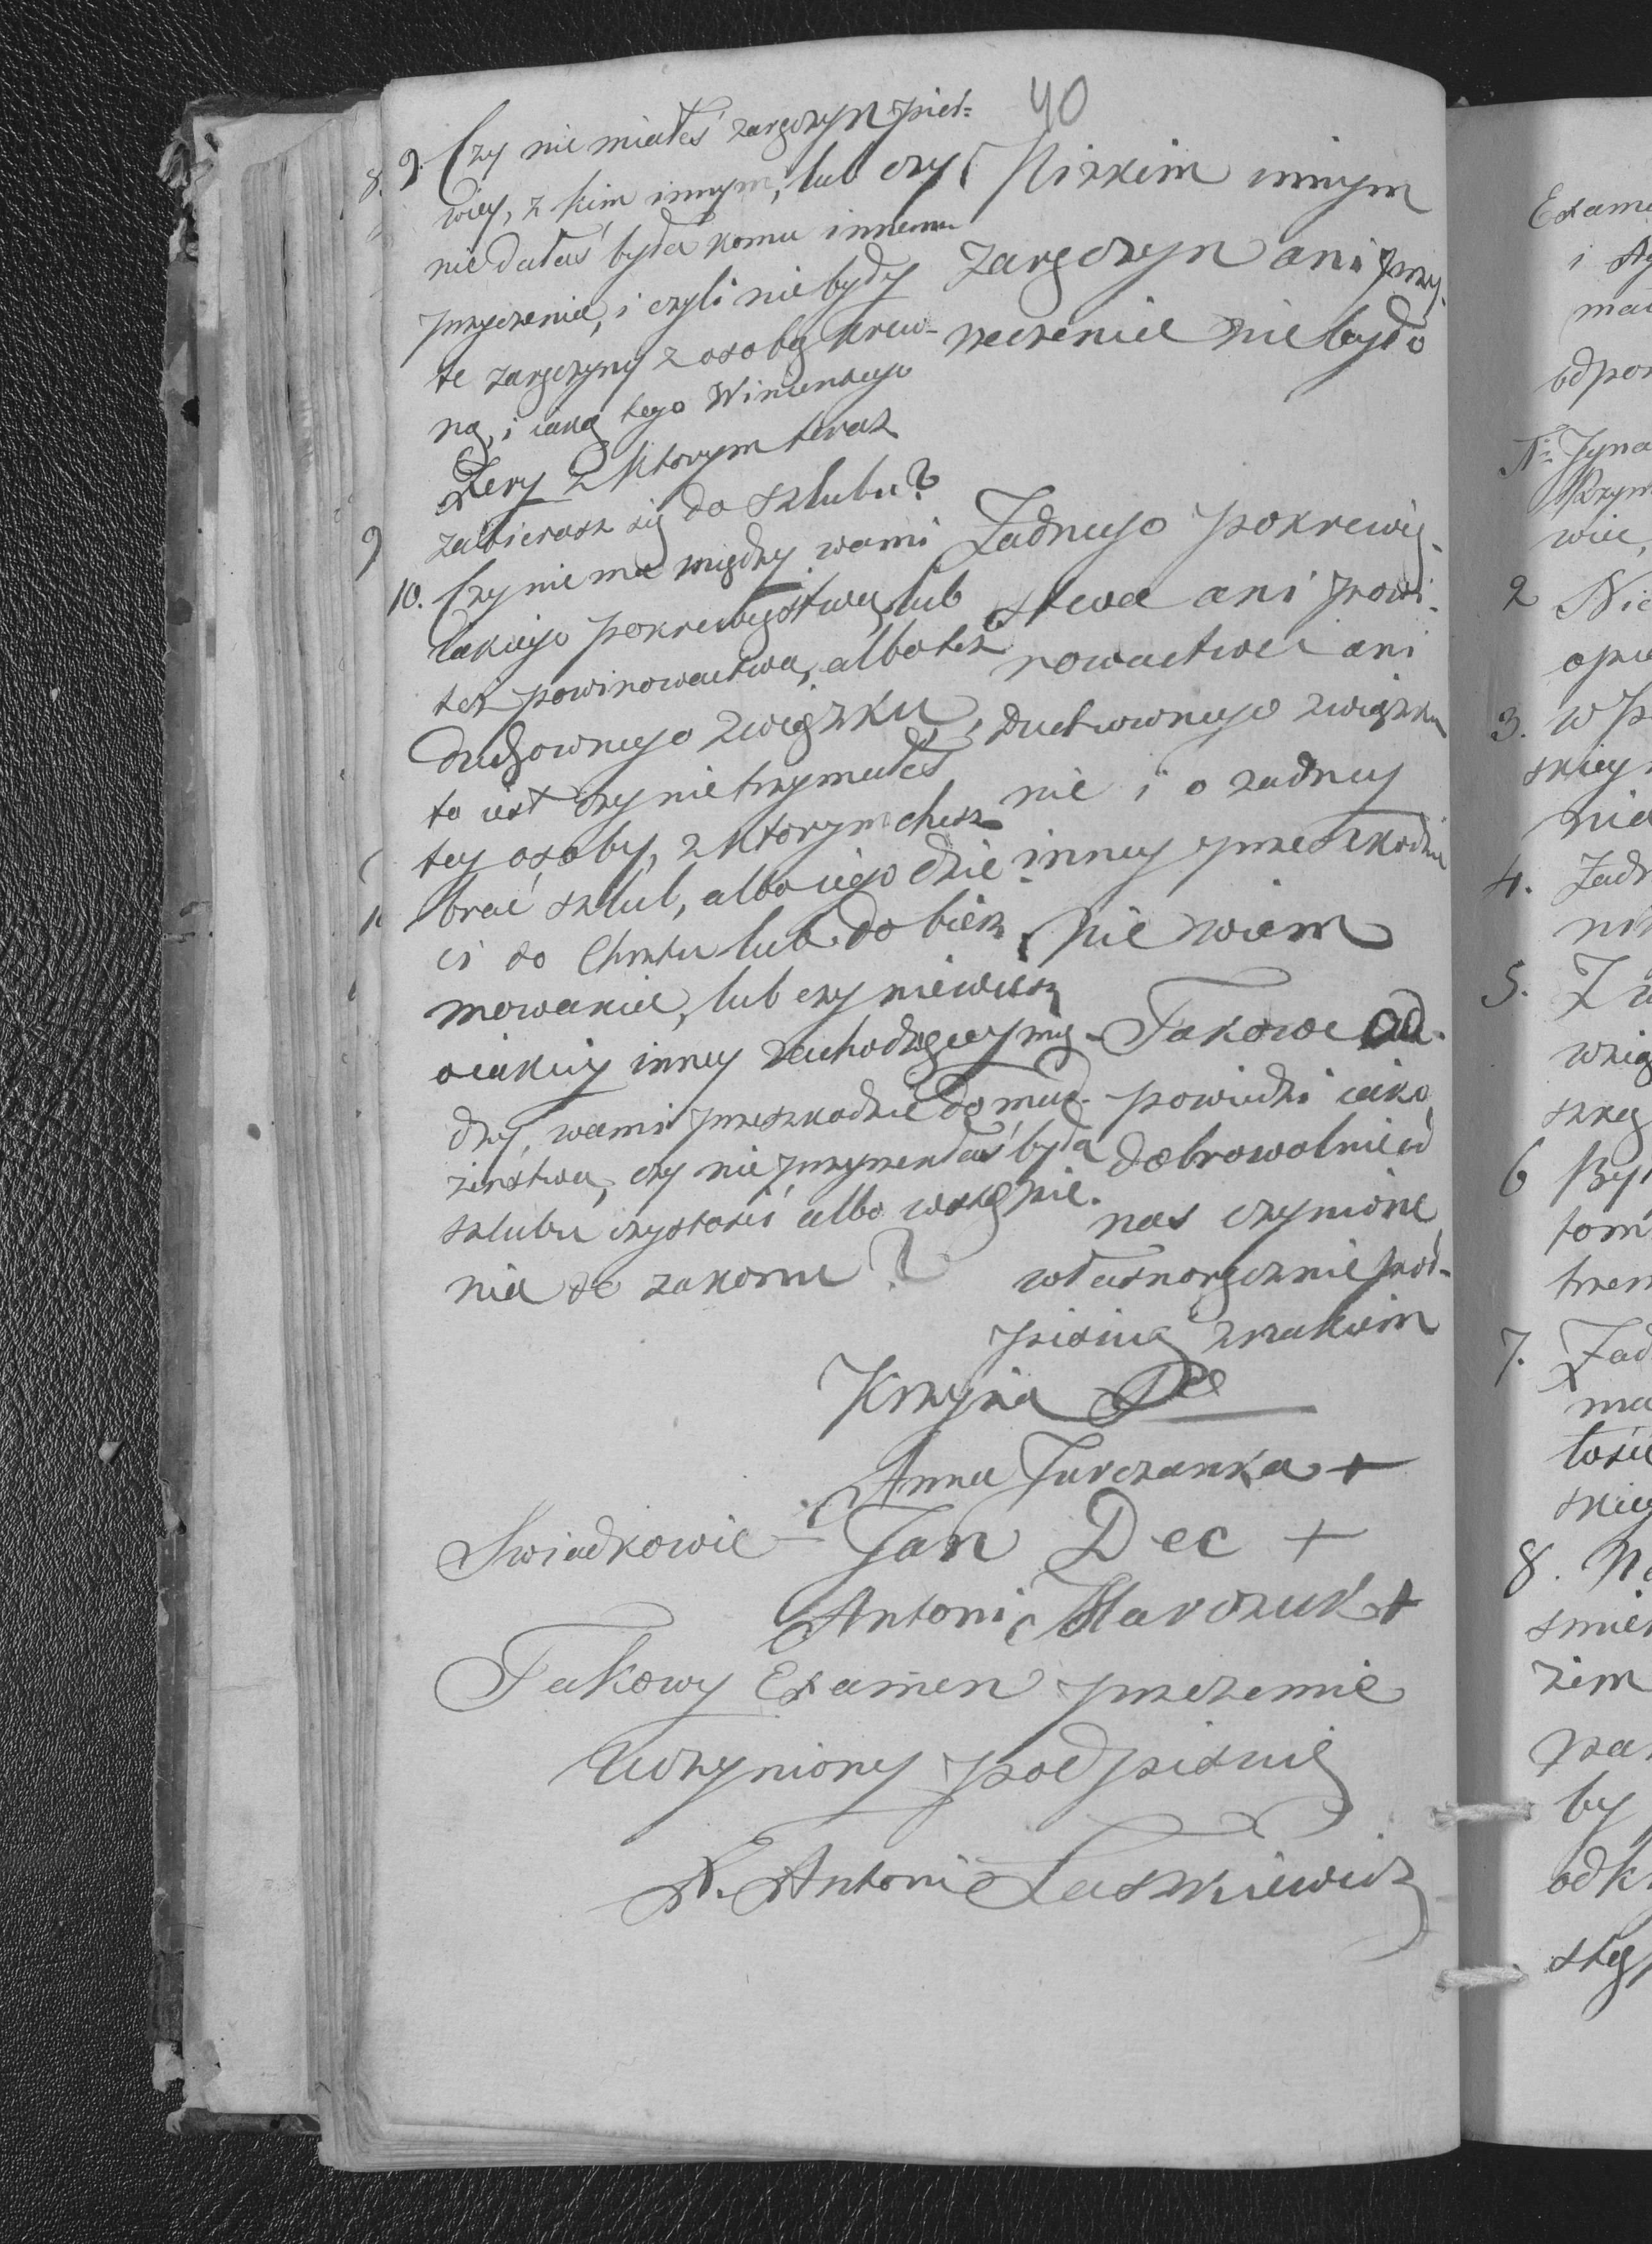 40
9. Czy nie miałeś zaręczyn pier=
wiey, z kim innym, lub czy
nie dałaś była komu innemu
przyrzenia, i czyli nie były
te zaręczyny z osobą krew-
ną, i iaką tego Wincentego
z ktorym teraz
zabierasz się do szlubu?
Nizkim innym
zaręczyn ani przy-
rzeczenia nie było
10. Czy nie ma między wami
iakiego pokrewięstwa, lub
też powinowactwa, albo też
duchownego związku,
to iest czy nie trzymałeś
tey osoby, z ktorym chcesz
brać szlub, albo iego dzie
ci do Chrztu lub do bierz
mowania, lub czy niewiesz
oiakiey inney zachodzącey mię-
dzy wami przeszkodzie do mał-
żeństwa, czy nie przyrzekłaś była
szlubu czystości albo wstąpie-
nia do zakonu?
Żadnego pokrewię-
stwa ani powi-
nowactwa ani
duchownego związku
nie i o żadney
inney przeszkodzie
nie wiem
Takowe od-
powiedzi iako
dobrowolnie od
nas czynione
własnoręcznie pod-
pisuią znakiem
Anna Jurczanka +
Swiadkowie - Jan Dec +
Antoni Marczuk +
Takowy Examen przezemie
Uczyniony podpisuię
X. Antoni Laszkiewicz
Exame
odpo
2 Nie
3. w p
skiey
nia
4. Żad
5. Z
wzią
6 Był
tom
7. Żad
ma
skie
8. N
zem
by
odk
stę